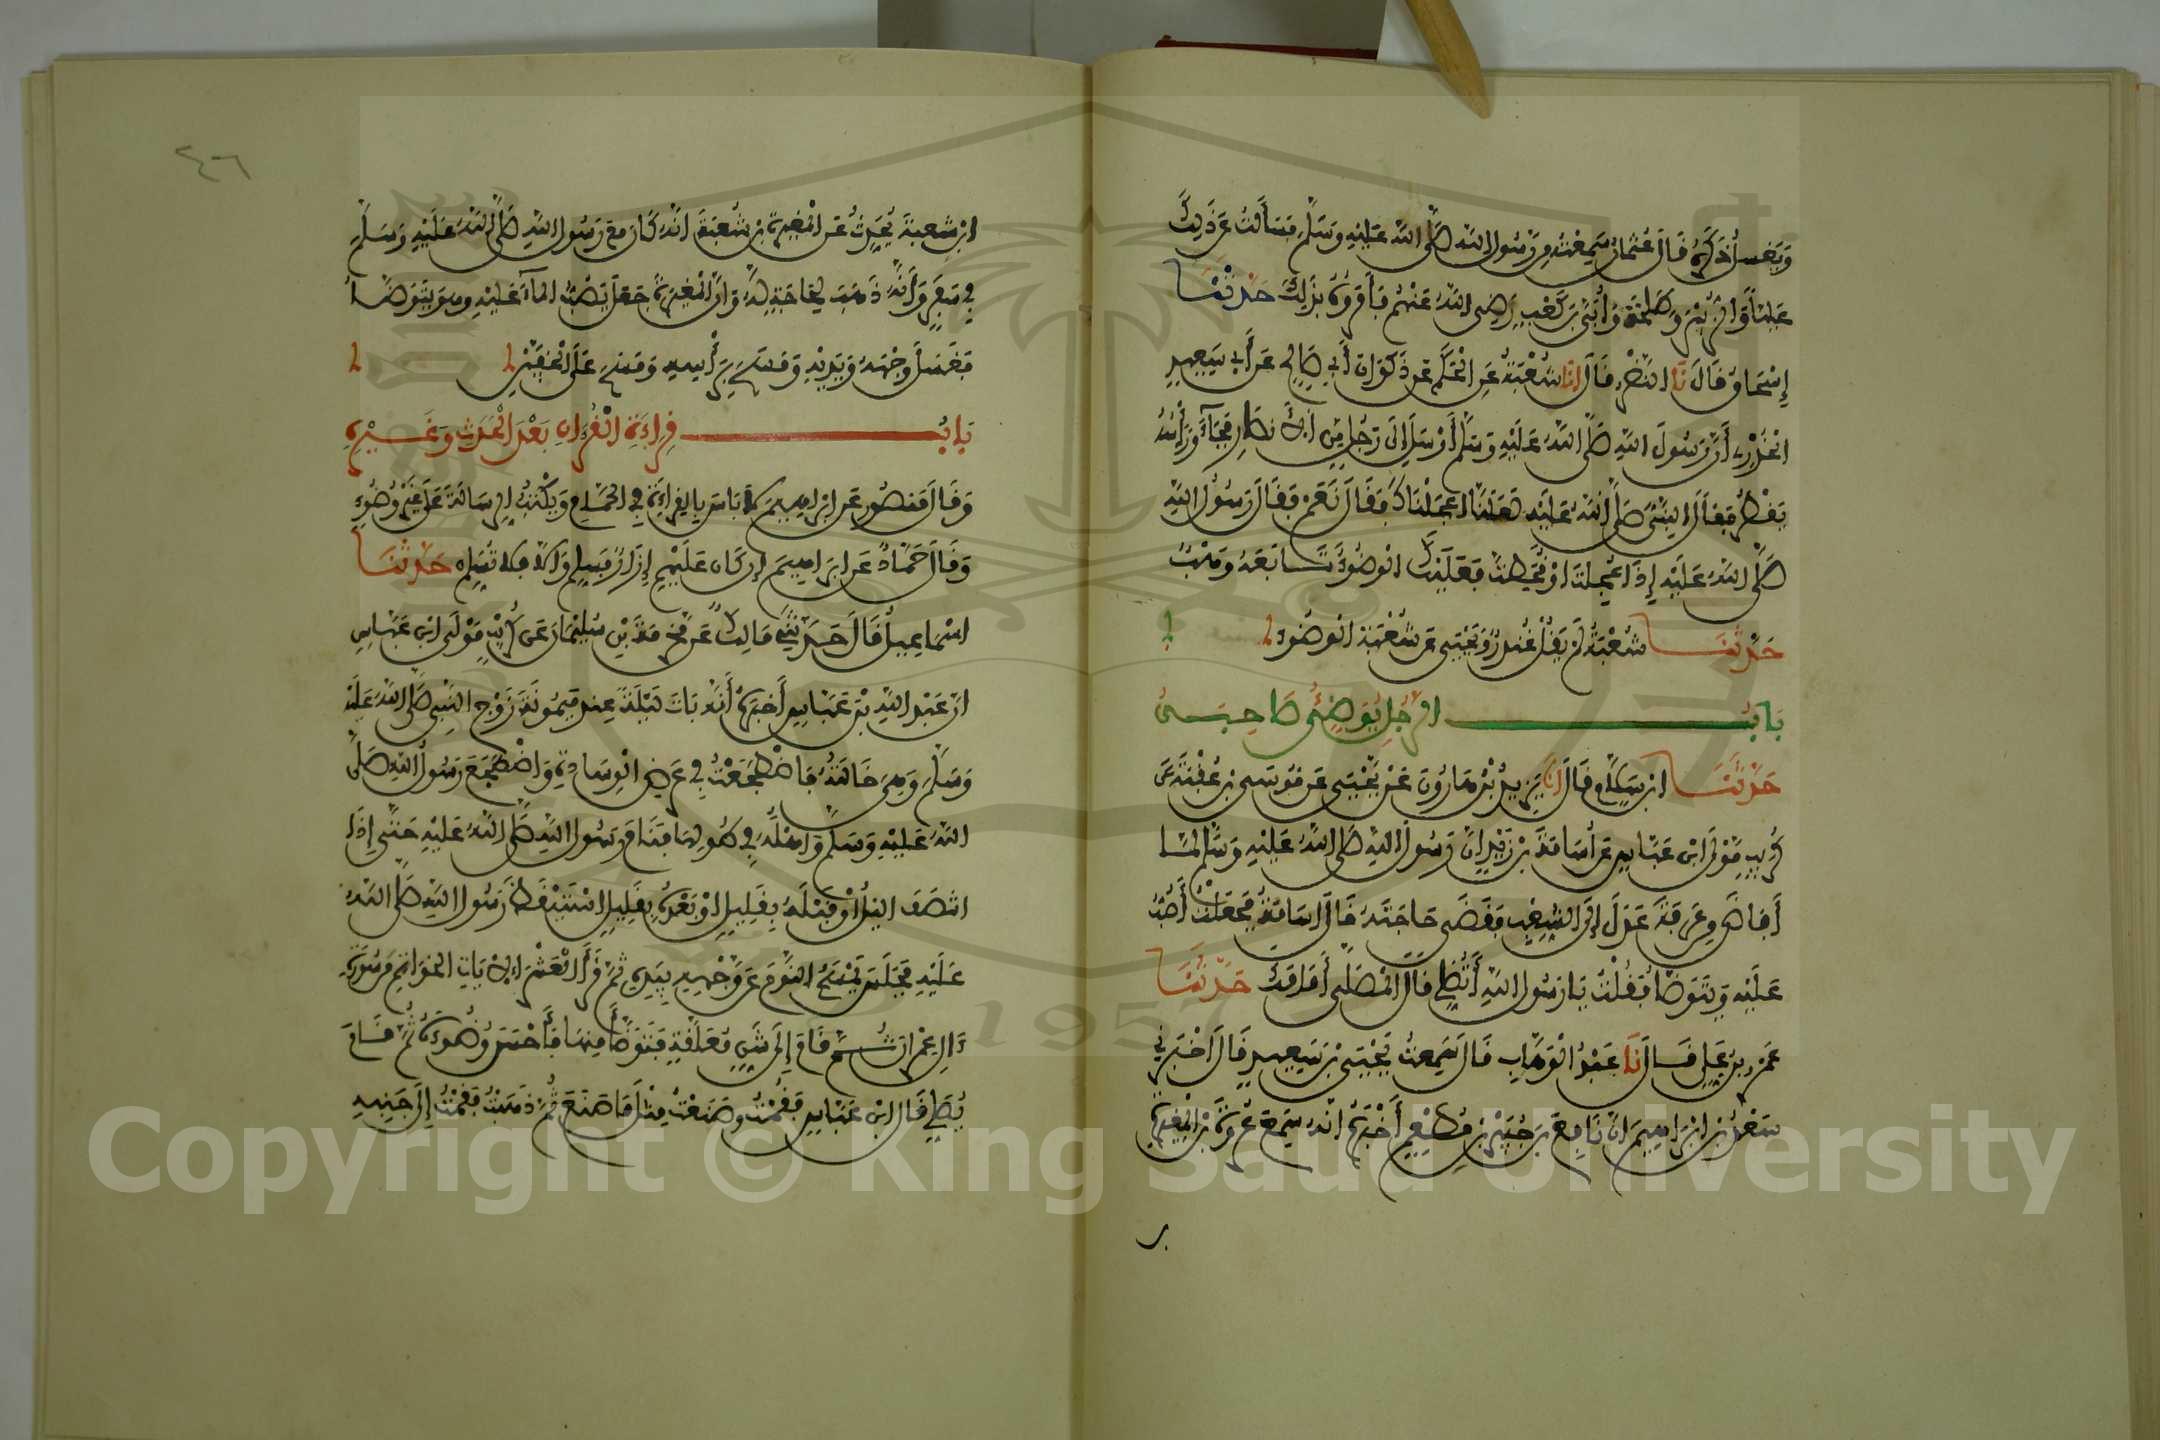 ويغسل ذكره قال عثمان سمعته من رسول الله صلى الله عليه وسلم فسألت عن ذلك
عليا والزبير وطلحة وأبي بن كعب رضي الله عنهم فأمروه بذلك حدثنا
إسحاق قال نا النضر قال انا شعبة عن الحكم عن ذكوان أبي صالح عن أبي سعيد
الخدري أن رسول الله صلى الله عليه وسلم أرسل إلى رجل من الأنصار فجاء ورأسه
يقطر فقال النبي صلى الله عليه لعلنا اعجلناك فقال نعم فقال رسول الله
صلى الله عليه إذا عجلت او قحطت فعليك الوضوء تابعه وهب
حدثنا شعبة لم يقل غندر ويحيى عن شعبة الوضوء
باب الرجل يوضئ صاحبه
حدثنا ابن سلام قال انا يزيد بن هارون عن يحيى عن موسى بن عقبة عن
كريب مولى ابن عباس عن أسامة بن زيد ان رسول الله صلى الله عليه وسلم لما
أفاض من عرفة عدل إلى الشعب فقضى حاجته قال اسامة فجعلت أصب
عليه ويتوضأ فقلت يا رسول الله أتصلي قال المصلى أمامك حدثنا
عمرو بن علي قال نا عبد الوهاب قال سمعت يحيى بن سعيد قال اخبرني
سعد بن ابراهيم ان نافع بن جبير بن مطعم أخبره انه سمع عروة بن المغيرة
بن
٢٤٦
ابن شعبة يحدث عن المغيرة بن شعبة انه كان مع رسول الله صلى الله عليه وسلم
في سفر وأنه ذهب لحاجة له وان المغيرة جعل يصب الماء عليه وهو يتوضأ
فغسل وجهه ويديه ومسح برأسه ومسح على الخفين
باب قراءة القرءان بعد الحدث وغيره
وقال منصور عن ابراهيم لا باس بالقراءة في الحمام وبكتب الرسالة على غير وضوء
وقال حماد عن ابراهيم إن كان عليهم إزار فسلم والا فلا تسلم حدثنا
اسماعيل قال حدثني مالك عن مخرمة بن سليمان عن كريب مولى ابن عباس
ان عبد الله بن عباس أخبره أنه بات ليلة عند ميمونة زوج النبي صلى الله عليه
وسلم وهي خالته فاضطجعت في عرض الوسادة واضطجع رسول الله صلى
الله عليه وسلم واهله في طولها فنام رسول الله صلى الله عليه حتى إذا
انتصف الليل او قبله بقليل او بعده بقليل استيقظ رسول الله صلى الله
عليه فجلس يمسح النوم عن وجهه بيده ثم قرأ العشر الايات الخواتم من سورة
ءال عمران ثم قام إلى شن معلقة فتوضأ منها فأحسن وضوءه ثم قام
يصلي قال ابن عباس فقمت وصنعت مثل ما صنع ثم ذهبت فقمت إلى جنبه
Copyright © King Saud University
1957